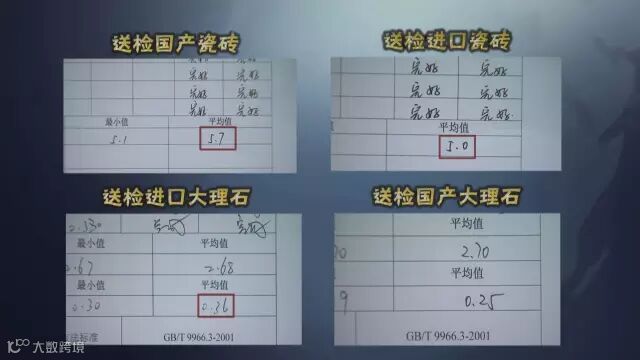 送检国产瓷砖
完好 完好
完好 完好
完好 完好
完好 完好
最小值 平均值
5.1 5.7
送检进口瓷砖
完好 完好
完好 完好
完好 完好
平均值
5.0
送检进口大理石
最小值 平均值
2.67 2.68
最小值 平均值
0.30 0.36
GB/T 9966.3-2001
送检国产大理石
平均值
2.70
平均值
0.25
GB/T 9966.3-2001
大数跨境